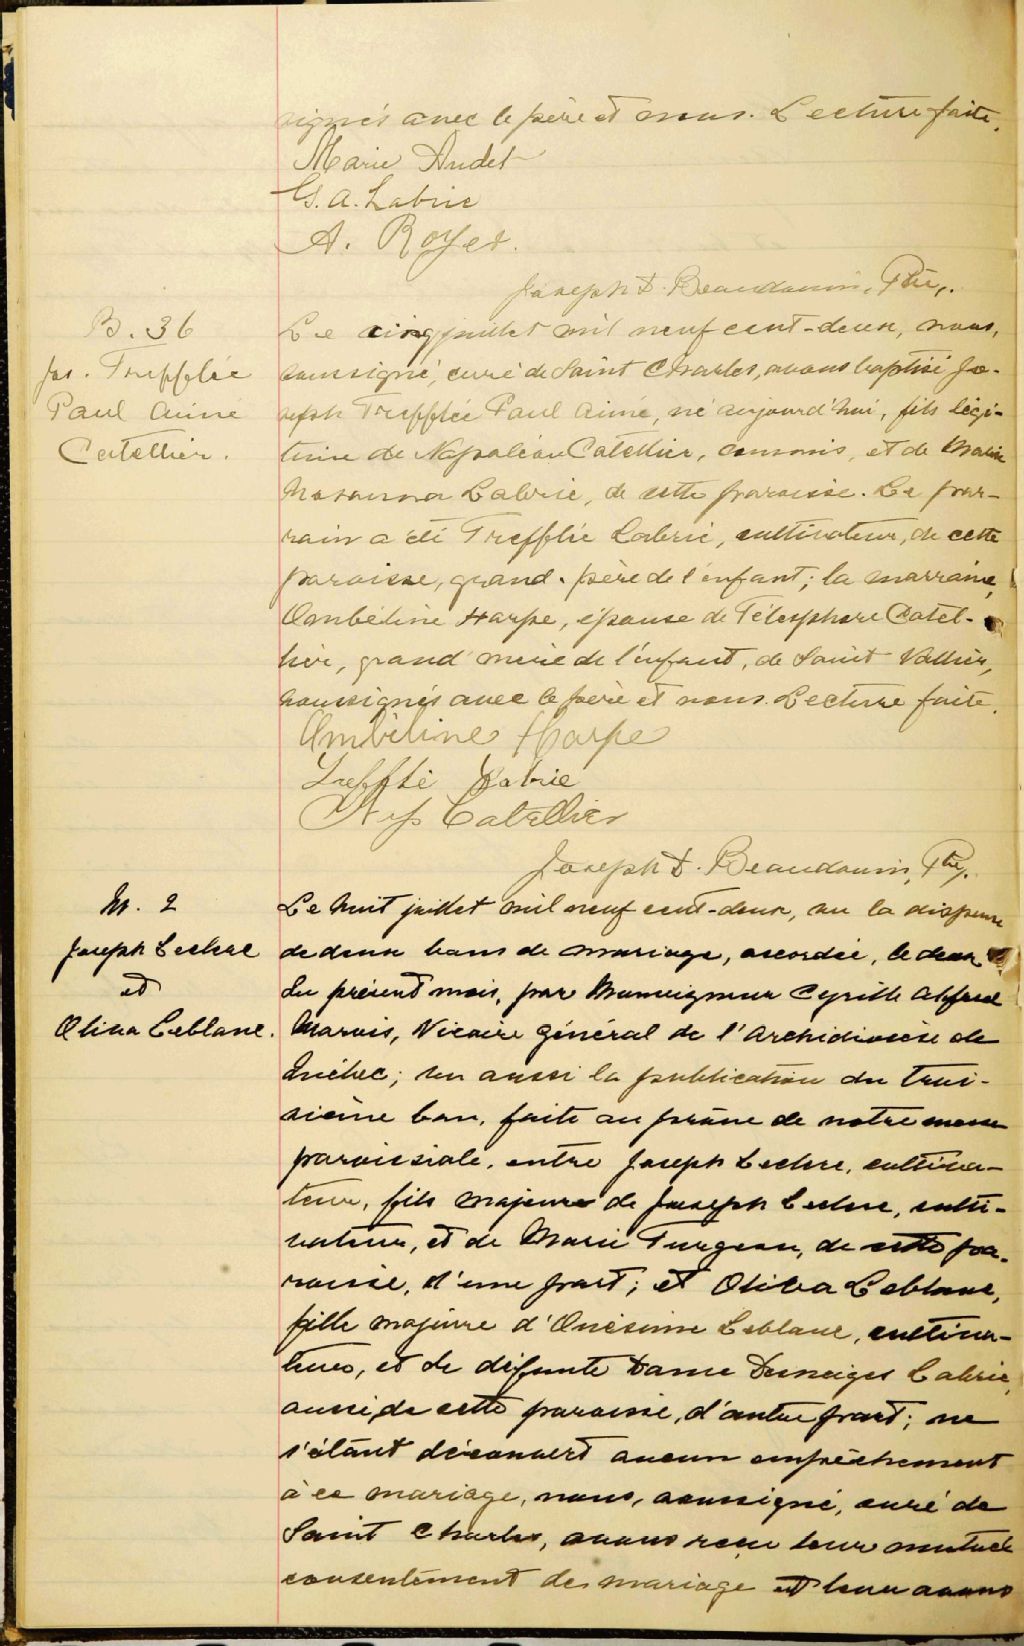 signés avec le père et nous. Lecture faite.
Marie Audet
G. A. Labrie
A. Royer.
Joseph D. Beaudouin, Ptre,.
B. 36
Jos. Trefflée
Paul Aimé
Catellier.
Le cinq juillet mil neuf cent-deux, nous,
soussigné, curé de Saint Charles, avons baptisé Jo-
seph Trefflée Paul Aimé, né aujourd'hui, fils légi-
time de Napoléon Catellier, commis, et de Marie
Rosanna Labrie, de cette paroisse. Le par-
rain a été Trefflée Labrie, cultivateur, de cette
paroisse, grand-père de l'enfant; la marraine,
Ombéline Harpe, épouse de Télesphore Catel-
lier, grand'mère de l'enfant, de Saint Vallier,
soussignés avec le père et nous. Lecture faite.
Ombéline Harpe
Trefflé Labrie
Nap Catellier
Joseph D. Beaudouin, Ptre,.
M. 2
Joseph Leclerc
et
Oliva Leblanc.
Le huit juillet mil neuf cent-deux, vu la dispense
de deux bans de mariage, accordée, le deux
du présent mois, par Monseigneur Cyrille Alfred
Marois, Vicaire Général de l'Archidiocèse de
Québec; vu aussi la publication du troi-
sième ban, faite au prône de notre messe
paroissiale, entre Joseph Leclerc, cultiva-
teur, fils majeur de Joseph Leclerc, culti-
vateur, et de Marie Turgeon, de cette pa-
roisse, d'une part; et Oliva Leblanc,
fille majeure d'Onésime Leblanc, cultiva-
teur, et de défunte Dame Desneiges Labrie,
aussi de cette paroisse, d'autre part; ne
s'étant découvert aucun empêchement
à ce mariage, nous, soussigné, curé de
Saint Charles, avons reçu leur mutuel
consentement de mariage et leur avons